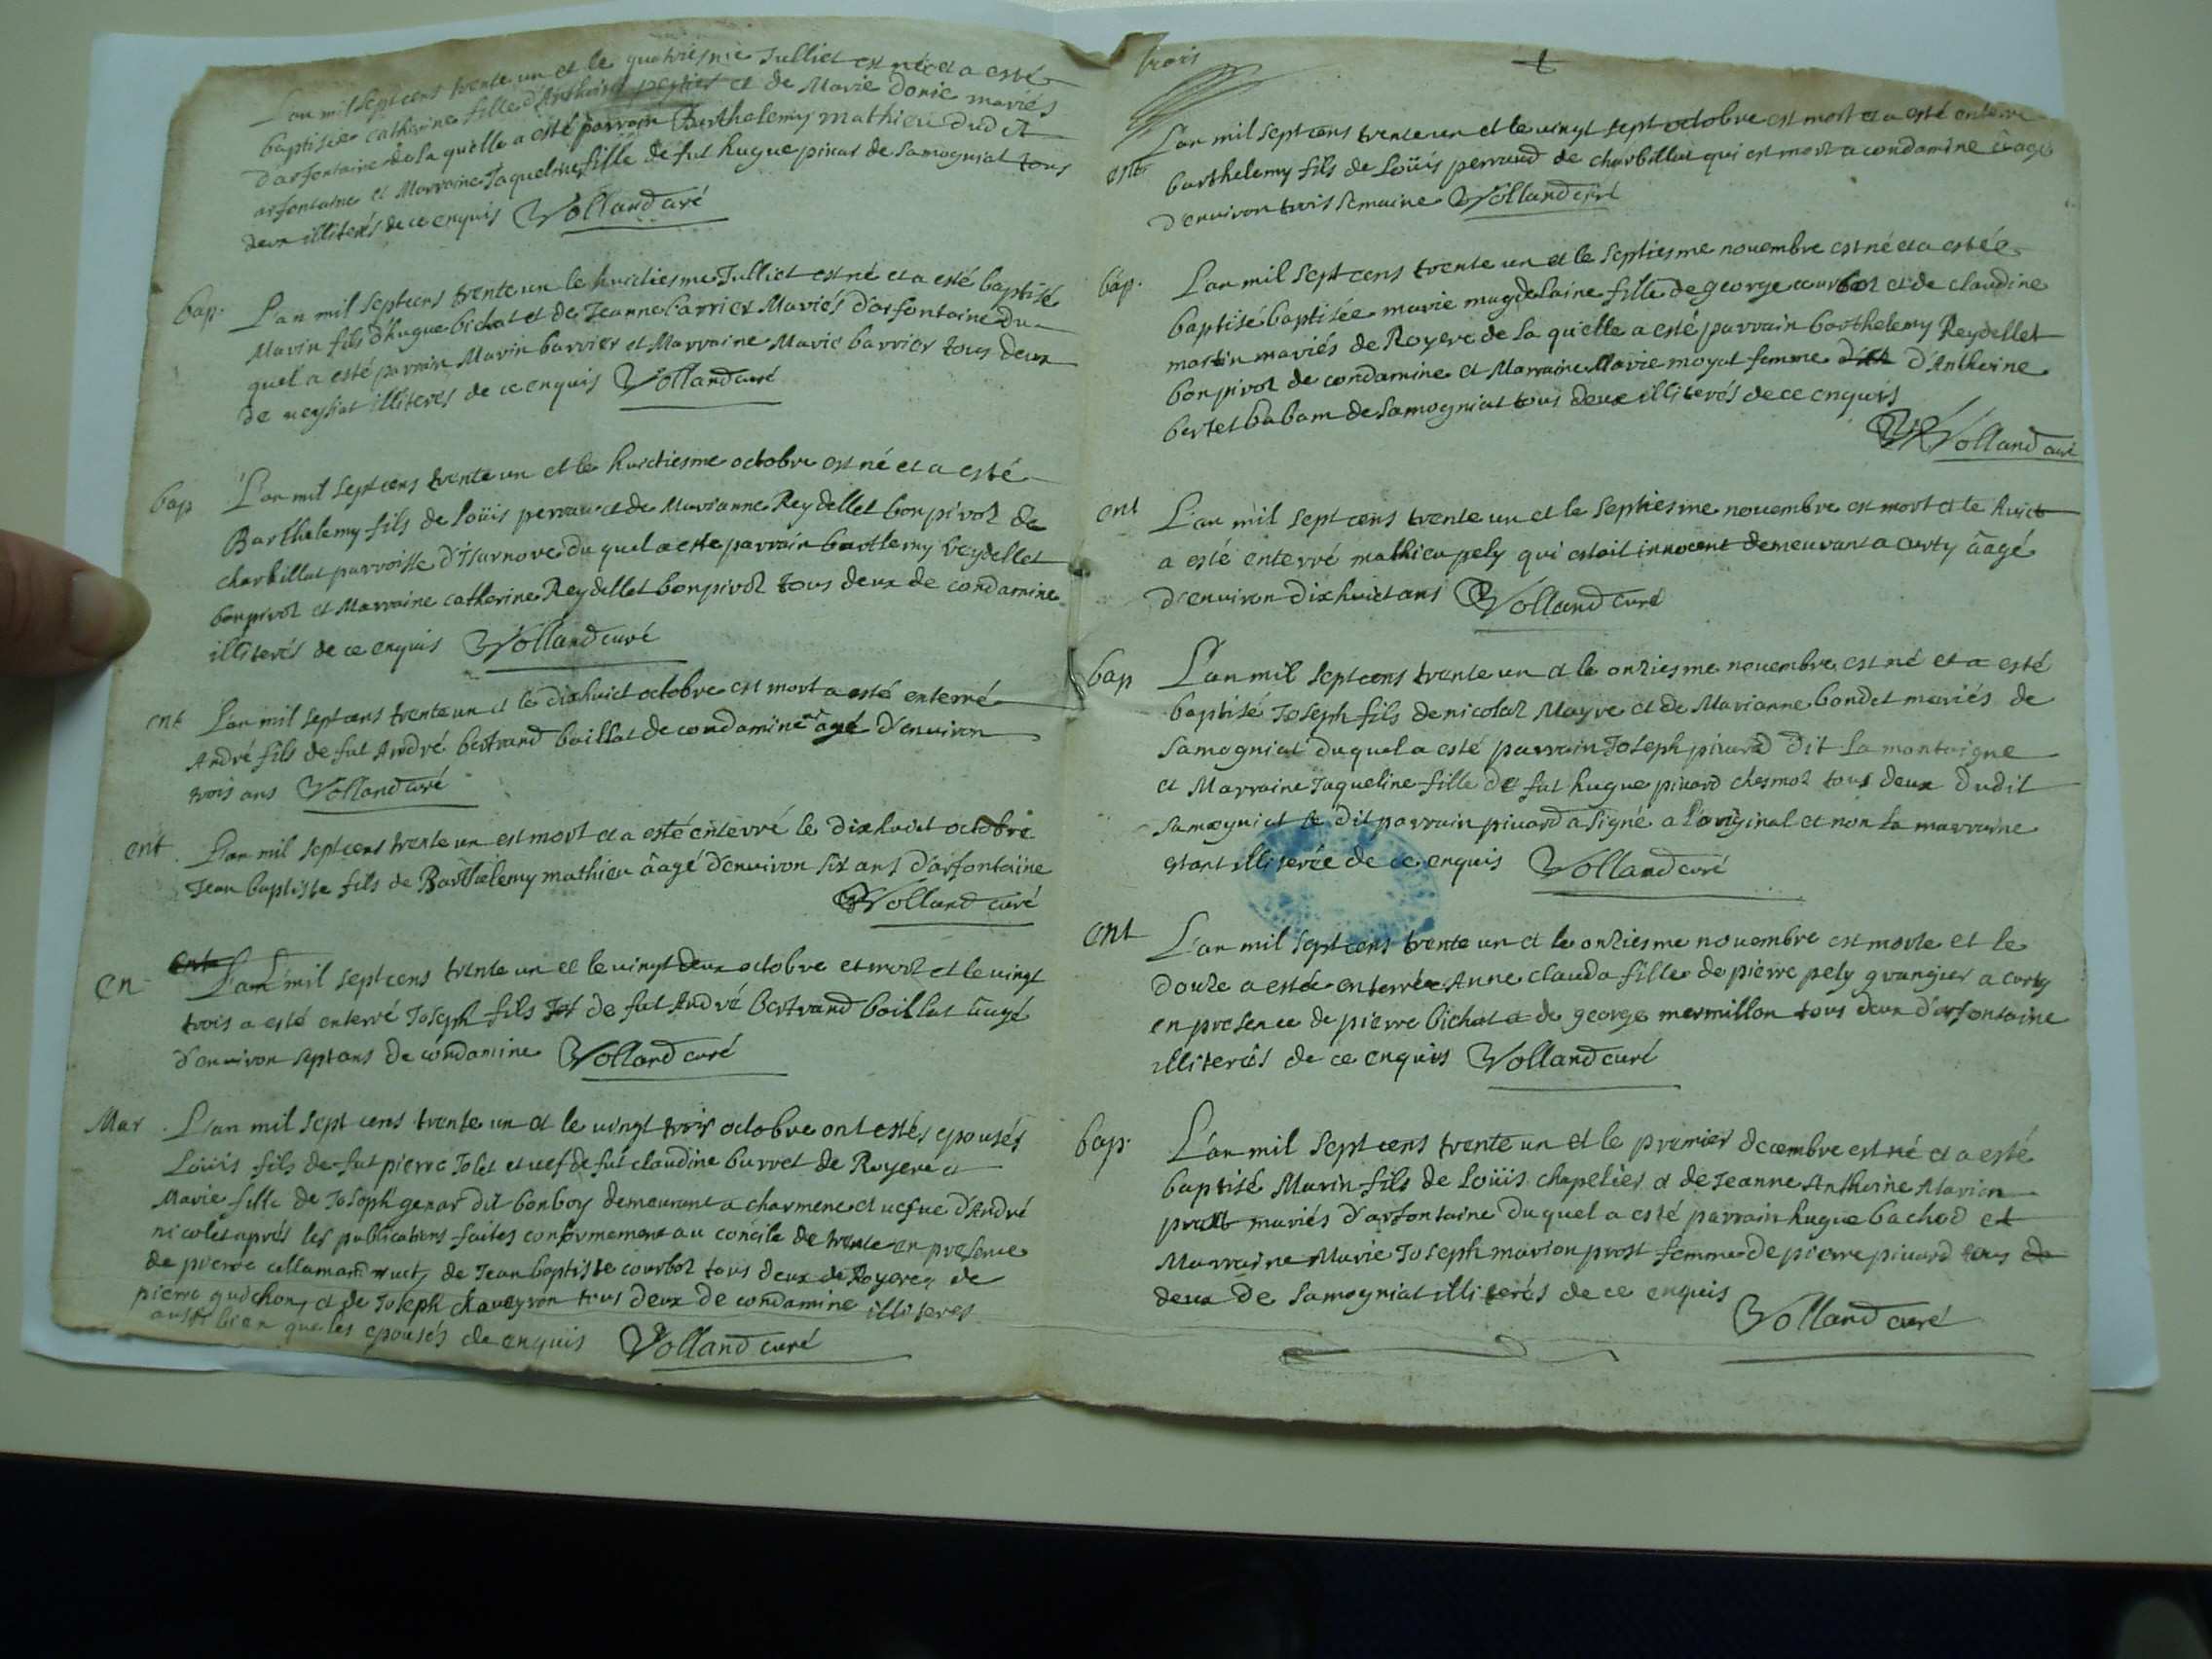 L'an mil sept cens trente un et le quatriesme Julliet est née et a esté
baptisée catherine fille d'Antheine et de Marie donie mariés
d'arfontaine de la quelle a esté parrain Barthelemy mathieu dudit
arfontaine et Marraine Jaqueline fille de fut hugue pivat de Samogniat tous
deux illiterés de ce enquis Volland curé
bap. L'an mil sept cens trente un le huictiesme Julliet est né et a esté baptisé
Marin fils d'hugue bichat et de Jeanne barrier Mariés d'arfontaine du
quel a esté parrain Marin barrier et Marraine Marie barrier tous deux
de neysiat illiteres de ce enquis Volland curé
bap L'an mil sept cens trente un et le huictiesme octobre est né et a esté
Barthelemy fils de Loüis perraud et de Marianne Reydellet bonpivot de
charbillat parroisse d'Isarnore du quel a este parrain bartlemy reydellet
bonpivot et Marraine catherine Reydellet bonpivot tous deux de condamine
illiterés de ce enquis Volland curé
ent L'an mil sept cens trente un et le dixhuict octobre est mort a esté enterré
André fils de fut André bertrand baillat de condamine âgé d'environ
trois ans Volland curé
ent. L'an mil sept cens trente un est mort et a esté enterré le dixhuict octobre
Jean baptiste fils de Barthelemy mathieu âagé d'environ six ans d'arfontaine
Volland curé
en L'an mil sept cens trente un et le vingt deux octobre et mort et le vingt
trois a esté enterré Joseph fils de fut André bertrand baillat âagé
d'environ sept ans de condamine Volland curé
Mar. L'an mil sept cens trente un et le vingt trois octobre ont estés epousés
Loüis fils de fut pierre Jolet et vef de fut claudine burret de Royere et
Marie fille de Joseph genar dit bonboy demeurant a charmene et vefve d'André
nicolet aprés les publications faites conformement au concile de trente en presence
de pierre callamand de Jean baptiste courbot tous deux de Royere, de
pierre guichon, et de Joseph chaveyron tous deux de condamine illiteres
aussi bien que les epousés de enquis Volland curé
trois
ent L'an mil sept cens trente un et le vingt sept octobre est mort et a esté enterré
barthelemy fils de Loüis perraud de charbillat qui est mort a condamine âagé
d'environ trois semaine Volland curé
bap. L'an mil sept cens trente un et le septiesme novembre est né et a estée
baptisé baptisée marie magdelaine fille de george courbot et de claudine
martin mariés de Royere de la quelle a esté parrain barthelemy Reydellet
bonpivot de condamine et Marraine Marie moyat femme d'Antheine
bertet babam de Samogniat tous deux illiterés de ce enquis
Volland curé
ent L'an mil sept cens trente un et le septiesme novembre est mort et le huict
a esté enterré mathieu pely qui estoit innocent demeurant a corty âagé
d'environ dixhuict ans Volland curé
bap L'an mil sept cens trente un et le onziesme novembre est né et a esté
baptisé Joseph fils de nicolaz Mayre et de Marianne bondet mariés de
Samogniat duquel a esté parrain Joseph pivard dit la montaigne
et Marraine Jaqueline fille de fut hugue pivard chesmoz tous deux dudit
Samogniat le dit parrain pivard a signé a l'original et non la marraine
estant illiterée de ce enquis Volland curé
ent L'an mil sept cens trente un et le onziesme novembre est morte et le
douze a estée enterrée Anne clauda fille de pierre pely grangier a corty
en presence de pierre bichat et de george mermillon tous deux d'arfontaine
illiterés de ce enquis Volland curé
bap. L'an mil sept cens trente un et le premier decembre est né et a esté
baptisé Marin fils de Loüis chapelier et de Jeanne Antheine Marion
prost mariés d'arfontaine duquel a esté parrain hugue bachod et
Marraine Marie Joseph marion prost femme de pierre pivard tous
deux de Samogniat illiterés de ce enquis
Volland curé